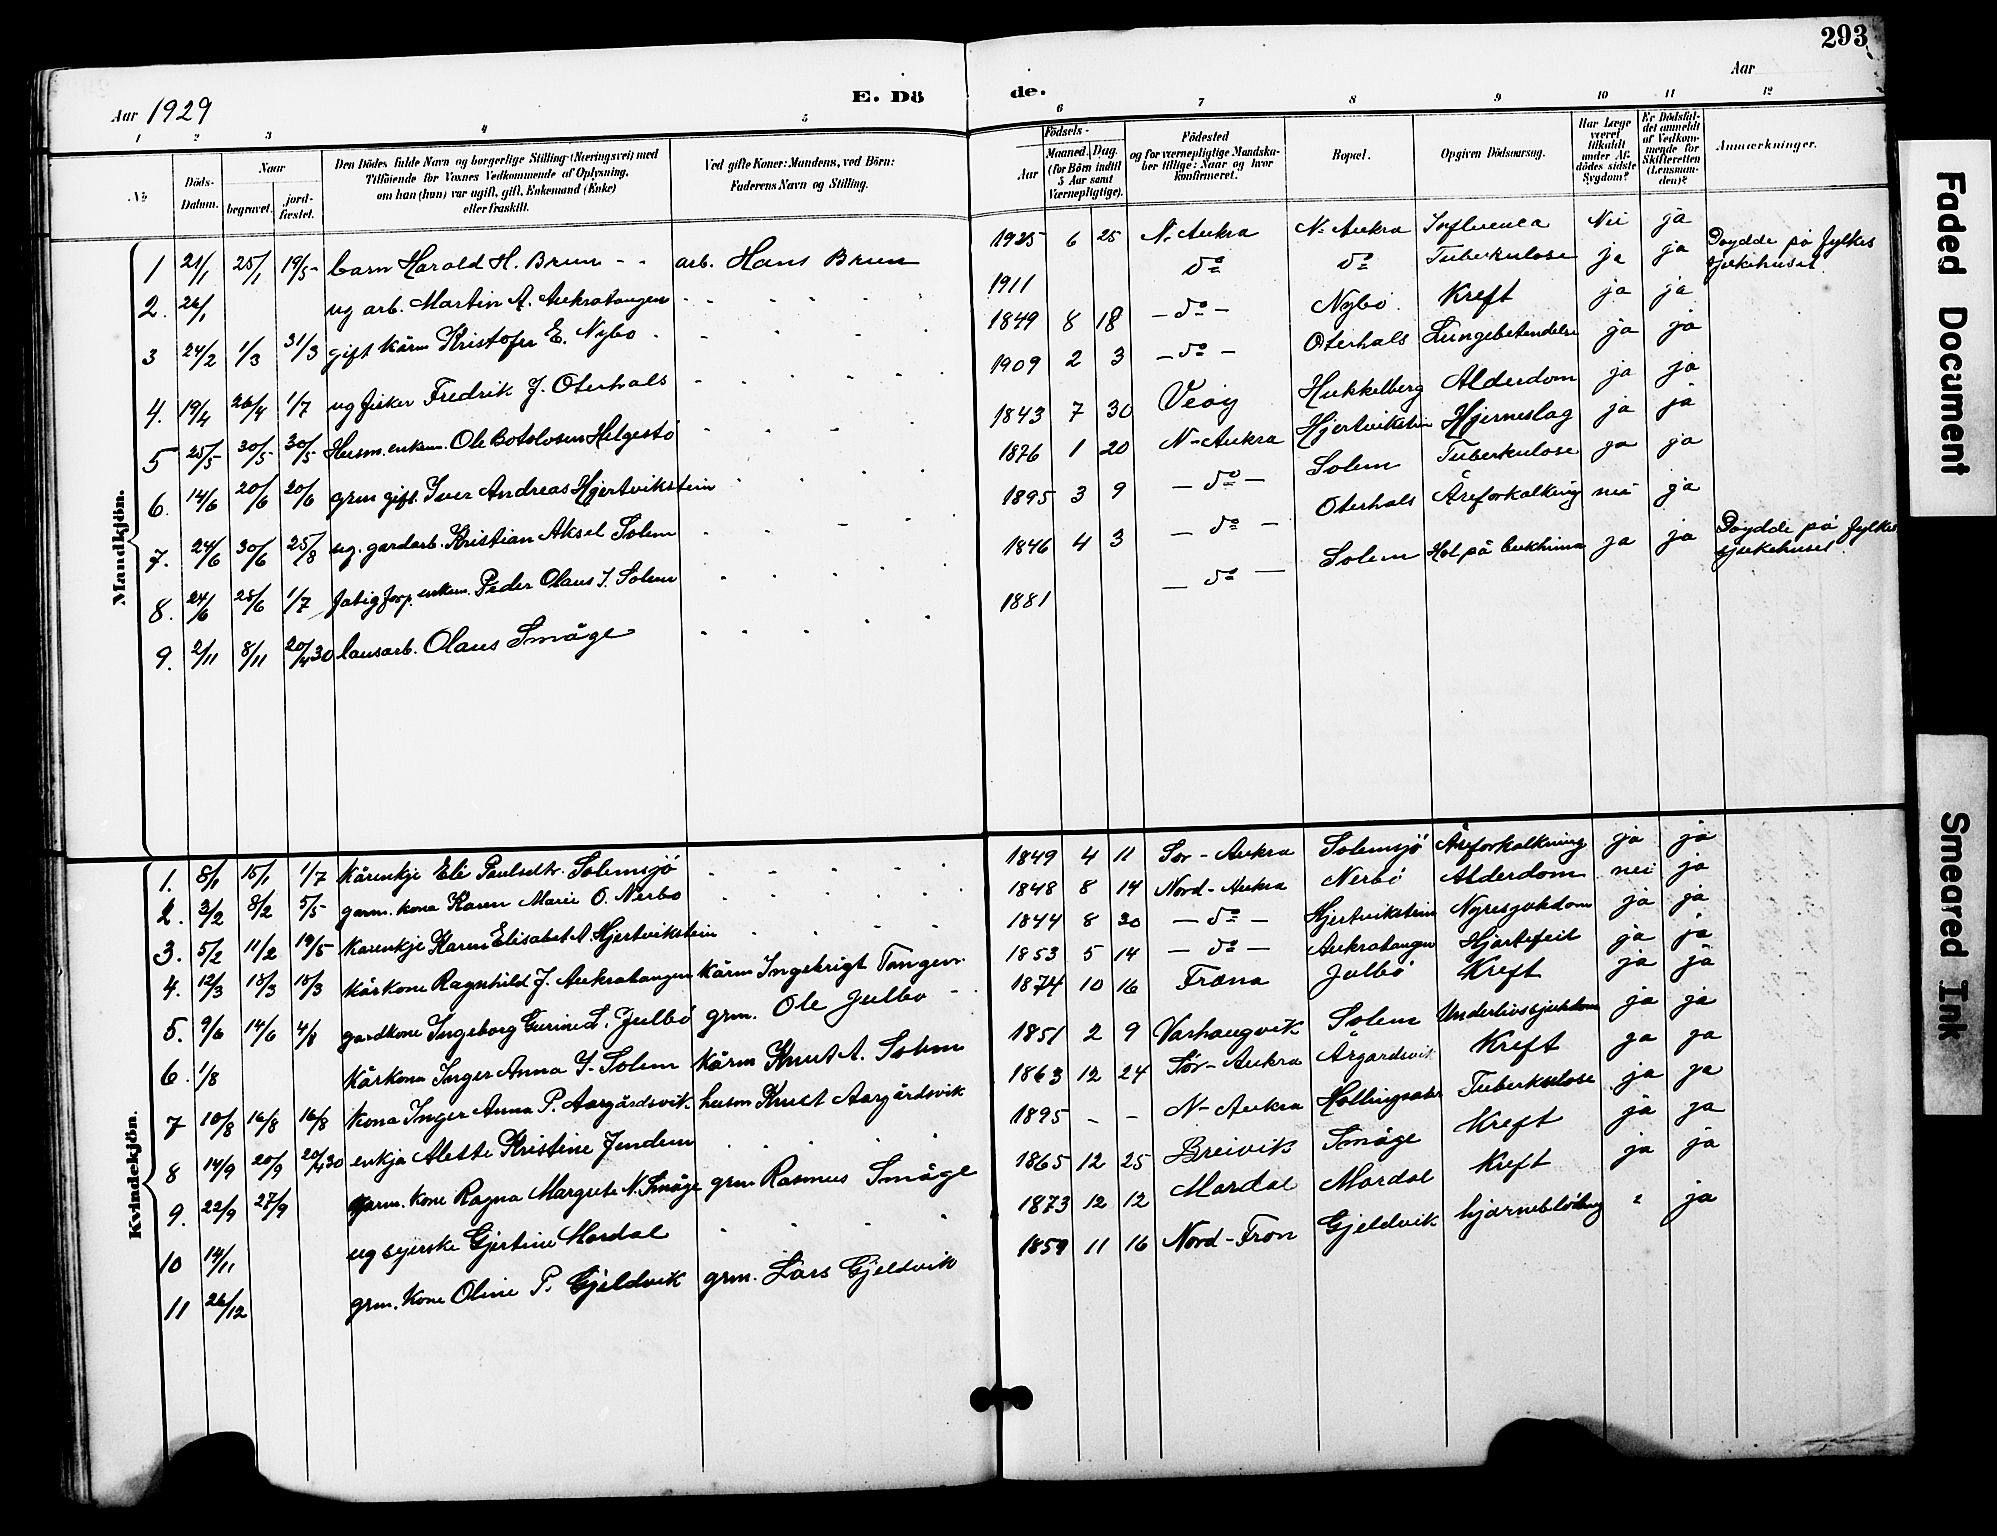 293
Aar 1929
E. Dö
de.
Aar
1 2 3 4 5 6 7 8 9 10 11 12
No
Döds-Datum.
Naar
begravet.
jordfæstet.
Den Dödes fulde Navn og borgerlige Stilling (Næringsvei) med
Tilföiende for Voxnes Vedkommende af Oplysning,
om han (hun) var ugift, gift, Enkemand (Enke)
eller fraskilt.
Ved gifte Koner: Mandens, ved Börn:
Faderens Navn og Stilling.
Födsels-
Aar
Maaned. Dag.
(for Börn indtil
5 Aar samt
Værnepligtige).
Födested
og for værnepligtige Mandskaber tillige: Naar og hvor
konfirmeret.
Bopæl.
Opgiven Dödsaarsag.
Har Læge
været
tilkaldt
under Afdödes sidste
Sygdom?
Er Dödsfaldet anmeldt
af Vedkommende for
Skifteretten
(Lensmanden)?
Anmærkninger.
Mandkjön.
1 21/1 25/1 19/5 barn Harald H. Brun - - arb. Hans Brun 1925 6 25 N. Aukra N. Aukra Influensa Nei ja
2. 26/1 ug arb. Martin A. Aukratangen 1911 do do Tuberkulose ja ja Döydde på fylkes sjukehuset
3 24/2 1/3 31/3 gift kårm Kristofer E. Nybö 1849 8 18 - do - Nybö Kreft ja ja
4. 19/4 26/4 1/7 ug fisker Fredrik J. Oterhals 1909 2 3 - do - Oterhals Lungebetendelse ja ja
5 25/5 30/5 30/5 Husm. enkem. Ole Botolvsen Helgestö 1843 7 30 Veöy Hukkelberg Alderdom ja ja
6. 14/6 20/6 20/6 grm gift. Iver Andreas Hjertvikstein 1876 1 20 N-Aukra Hjertvikstein Hjerneslag ja ja
7. 24/6 30/6 25/8 ug. gardarb. Kristian Aksel Solem 1895 3 9 - do - Solem Tuberkulose ja ja
8. 24/6 28/6 1/7 fatigforp. enkem. Peder Olaus J. Solem 1846 4 3 - do - Oterhals Åreforkalking nei ja
9. 2/11 8/11 20/4 30 lausarb. Olaus Småge 1881 - do - Solem Hol på bukhinna ja ja Döydde på fylkes sjukehuset.
Kvindekjön.
1. 8/1 15/1 1/7 Kårenkje Eli Paulsdtr. Solemsjö 1849 4 11 Sor-Aukra Solemsjö Åreforkalkning ja ja
2. 3/2 8/2 5/5 garm. kona Karen Marie O. Nerbö 1848 8 14 Nord-Aukra Nerbö Alderdom nei ja
3. 5/2 11/2 19/5 Kårenkje Karen Elisabet A. Hjertvikstein 1844 8 30 - do - Hjertvikstein Nyresjukdom ja ja
4. 12/3 18/3 18/3 Kårkone Ragnhild J. Aukratangen kårm Ingebrigt Tangen 1853 5 14 - do - Aukratangen Hjartefeil ja ja
5. 9/6 14/6 4/8 gardkone Ingeborg Gurine L. Julbö grm. Ole Julbö 1874 10 16 Fræna Julbö Kreft ja ja
6. 1/8 Kårkona Inger Anna J. Solem Kårm Knut A. Solem 1851 2 9 Varhaugvik Solem Underlivssjukdom ja ja
7 10/8 16/8 16/8 Kona Inger Anna P. Aargårdsvik husm Knut Aargårdsvik 1863 12 24 Sör-Aukra Årgardsvik Kreft ja ja
8 14/9 20/9 20/4 30 enkja Alette Kristine Jendem 1895 - - N-Aukra Hollingsæter Tuberkulose ja ja
9. 22/9 27/9 garm. kone Ragna Margrete N. Småge grm Rasmus Småge 1865 12 25 Breivik Småge Kreft ja ja
10 14/11 ug syerske Gjertine Mordal 1873 12 12 Mordal Mordal Kreft ja ja
11 26/12 grm. Kone Oline P. Gjeldvik grm. Lars Gjeldvik 1859 11 16 Nord-Fron Gjeldvik hjarneblödning " ja
Faded Document
Smeared Ink